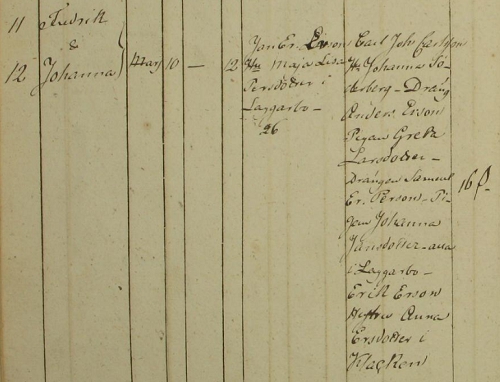 11 Fredrik
&
12 Johanna } Mars 10 — 12
Jan Er. Ersson
Hu Maja Lisa
Persdotter i
Laggarbo —
26
Carl Joh Carlsson
Hu Johanna Sö-
derberg — Dräng
Anders Erson
Pigan Greta
Larsdotter —
Drängen Samuel
Er. Person — Pi-
gan Johanna
Jansdotter — alla
i Laggarbo —
Erik Erson
Hustru Anna
Ersdotter i
Klacken
16